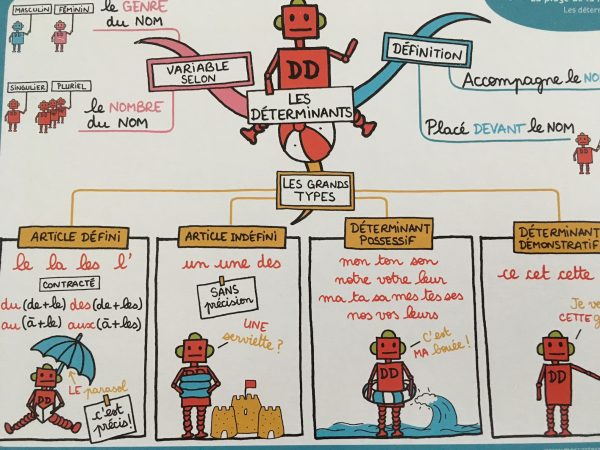 MASCULIN
FÉMININ
le GENRE
du NOM
SINGULIER
PLURIEL
le NOMBRE
du NOM
VARIABLE
SELON
DD
LES
DÉTERMINANTS
DÉFINITION
Les déterm
Accompagne le NO
Placé DEVANT le NOM
LES GRANDS
TYPES
ARTICLE DÉFINI
le la les l'
CONTRACTÉ
du (de+le) des (de+les)
au (à+le) aux (à+les)
LE parasol
c'est
précis!
DD
ARTICLE INDÉFINI
un une des
SANS
précision
UNE
serviette?
DÉTERMINANT
POSSESSIF
mon ton son
notre votre leur
ma ta sa mes tes ses
nos vos leurs
C'est
MA bouée!
DD
DÉTERMINANT
DÉMONSTRATIF
ce cet cette
Je ve
CETTE g
DD